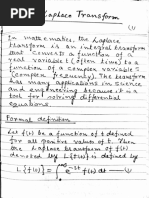 Laplace Transform
(1)
In mathematics, the Laplace
transform is an integral transform
that converts a function of a
real variable t (often time) to a
function of a complex variable s
(complex frequency). The transform
has many applications in science
and engineering because it is a
tool for solving differential
equations.
Formal definition
Let f(t) be a function of t defined
for all positive values of t. Then
the Laplace transform of f(t)
denoted by L{f(t)} is defined by
L{f(t)} = ∫₀^∞ e^-st f(t) dt — (1)